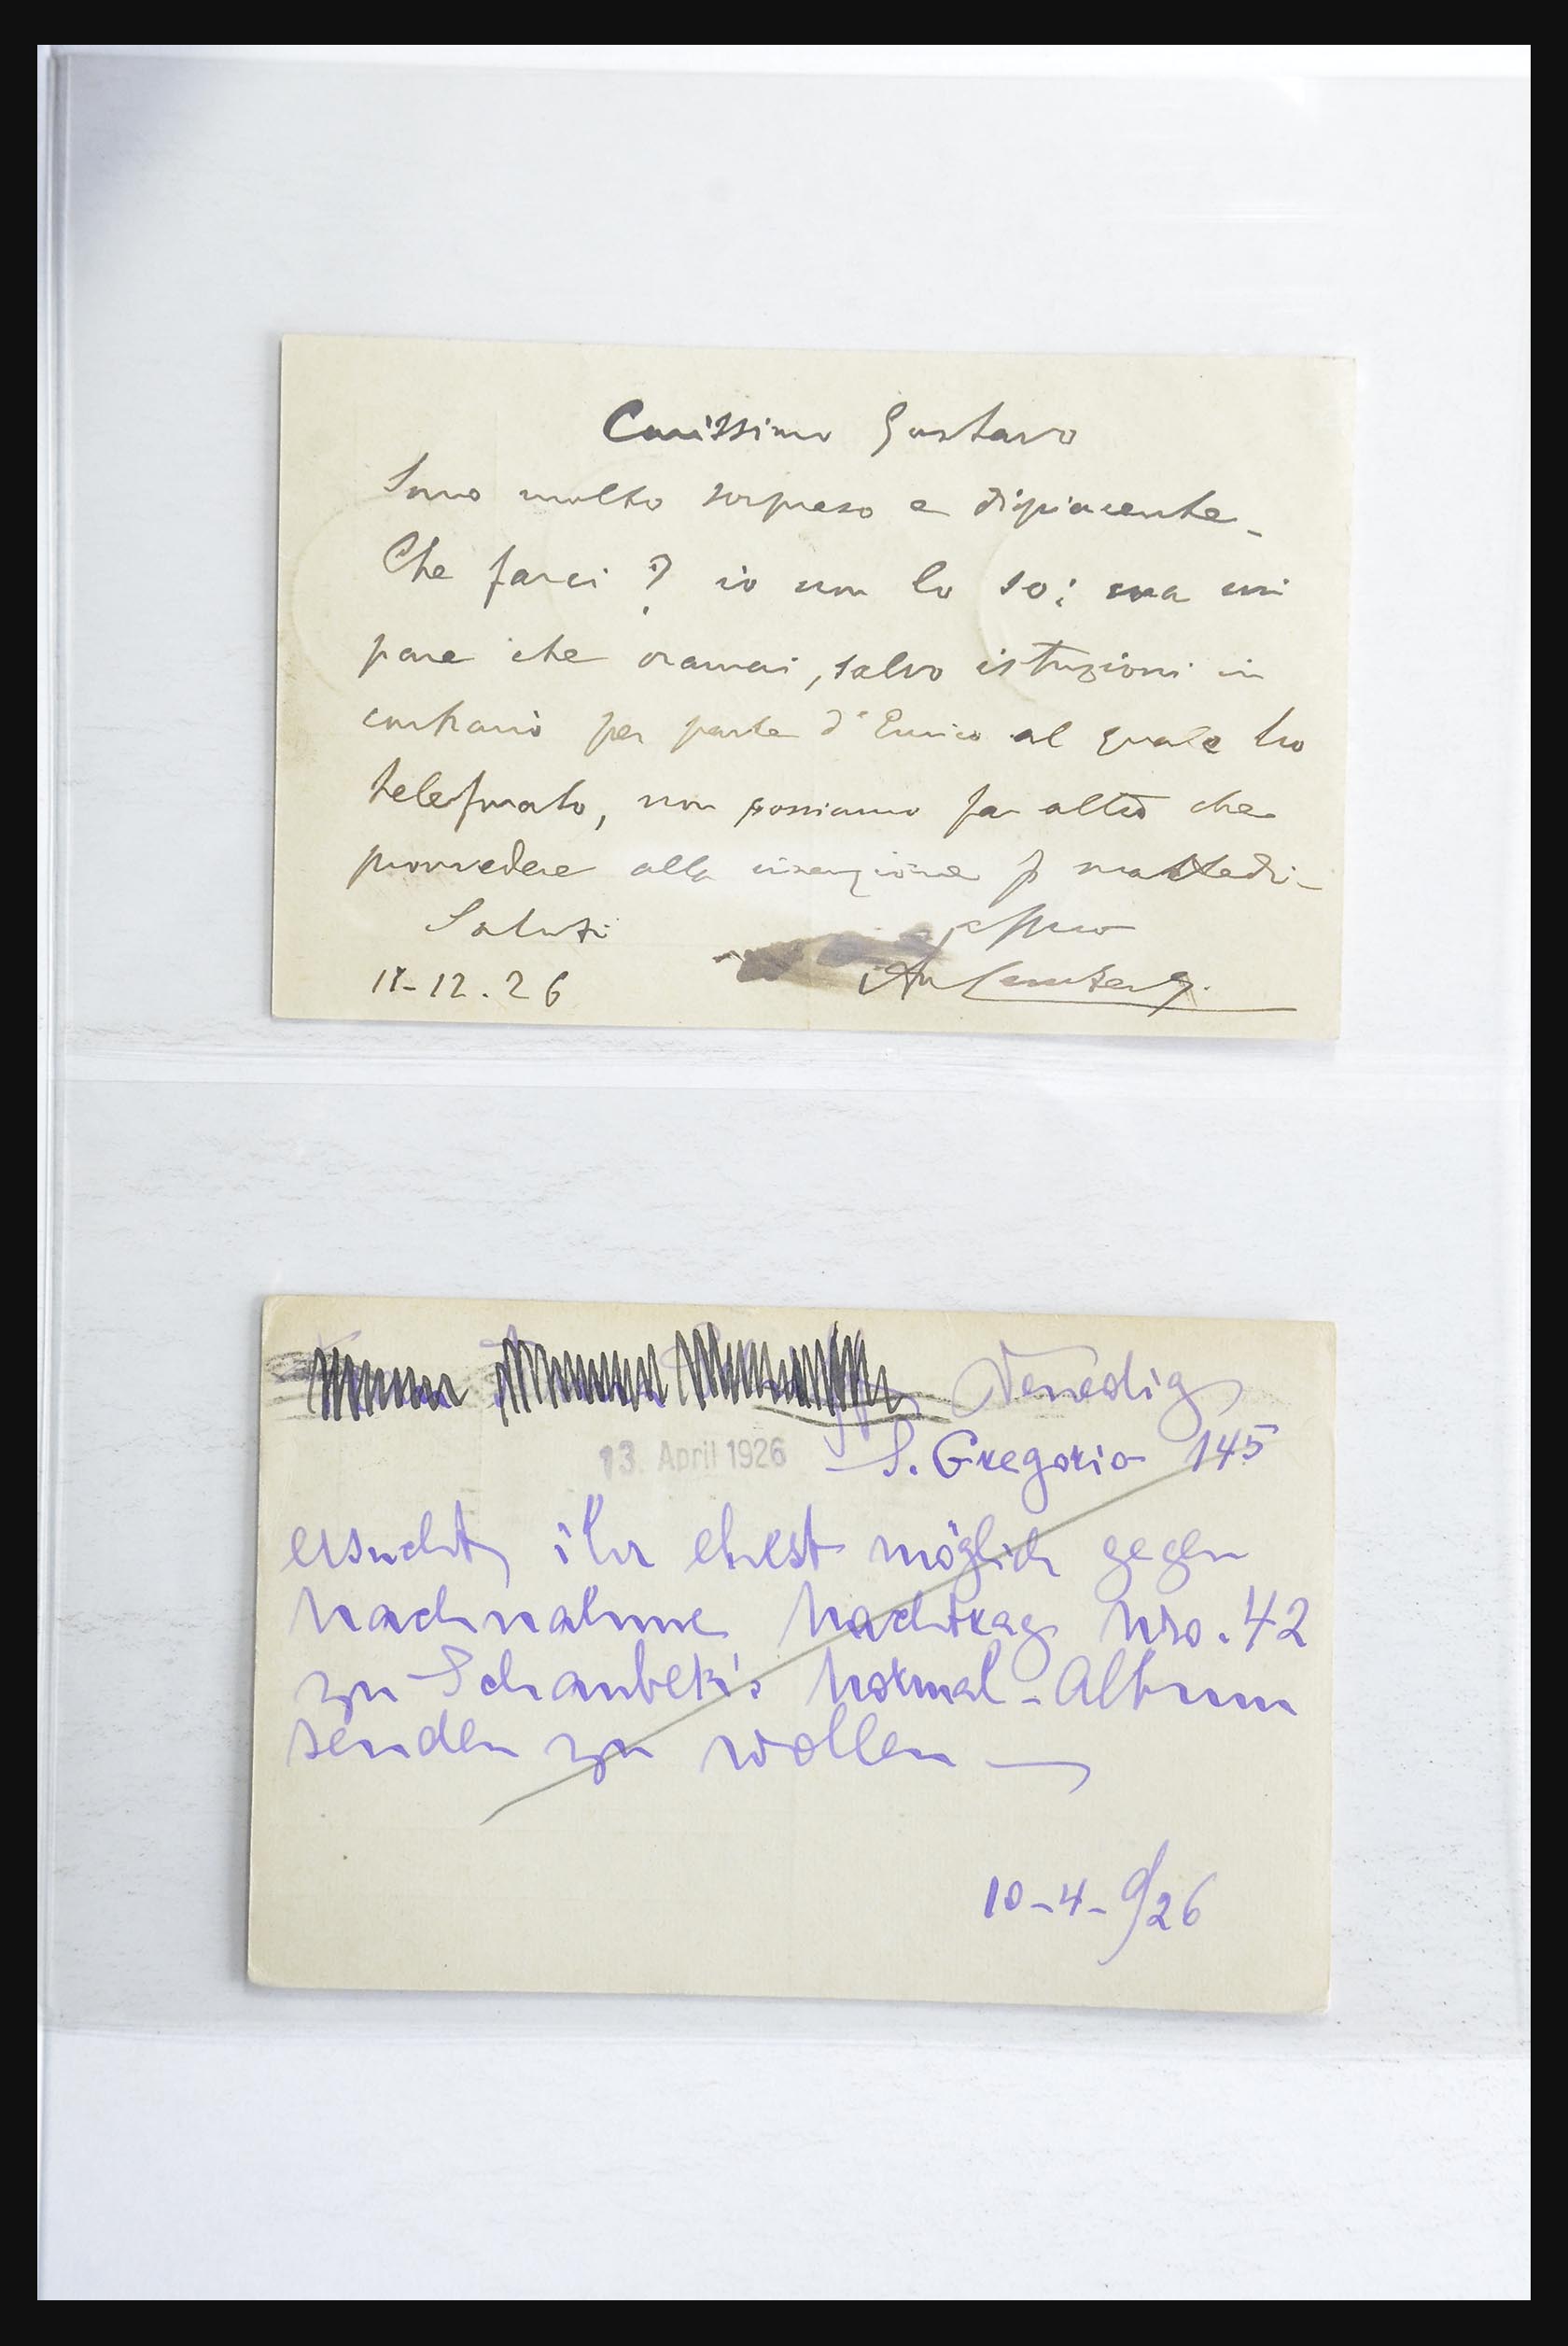 Carissimo Gustavo
Sono molto sorpreso e dispiacente_
Che farci? io non lo so; ma mi
pare che oramai, salvo istruzioni in
contrario per parte d'Enrico al quale ho
telefonato, non possiamo far altro che
provvedere alla inserzione p martedì_
Saluti
11-12.26
Venedig
13. April 1926
S. Gregorio 145
ersucht ihr ehest möglich gegen
Nachnahme Nachtrag Nro. 42
zu Schaubek's Normal-Album
senden zu wollen —
10-4-926